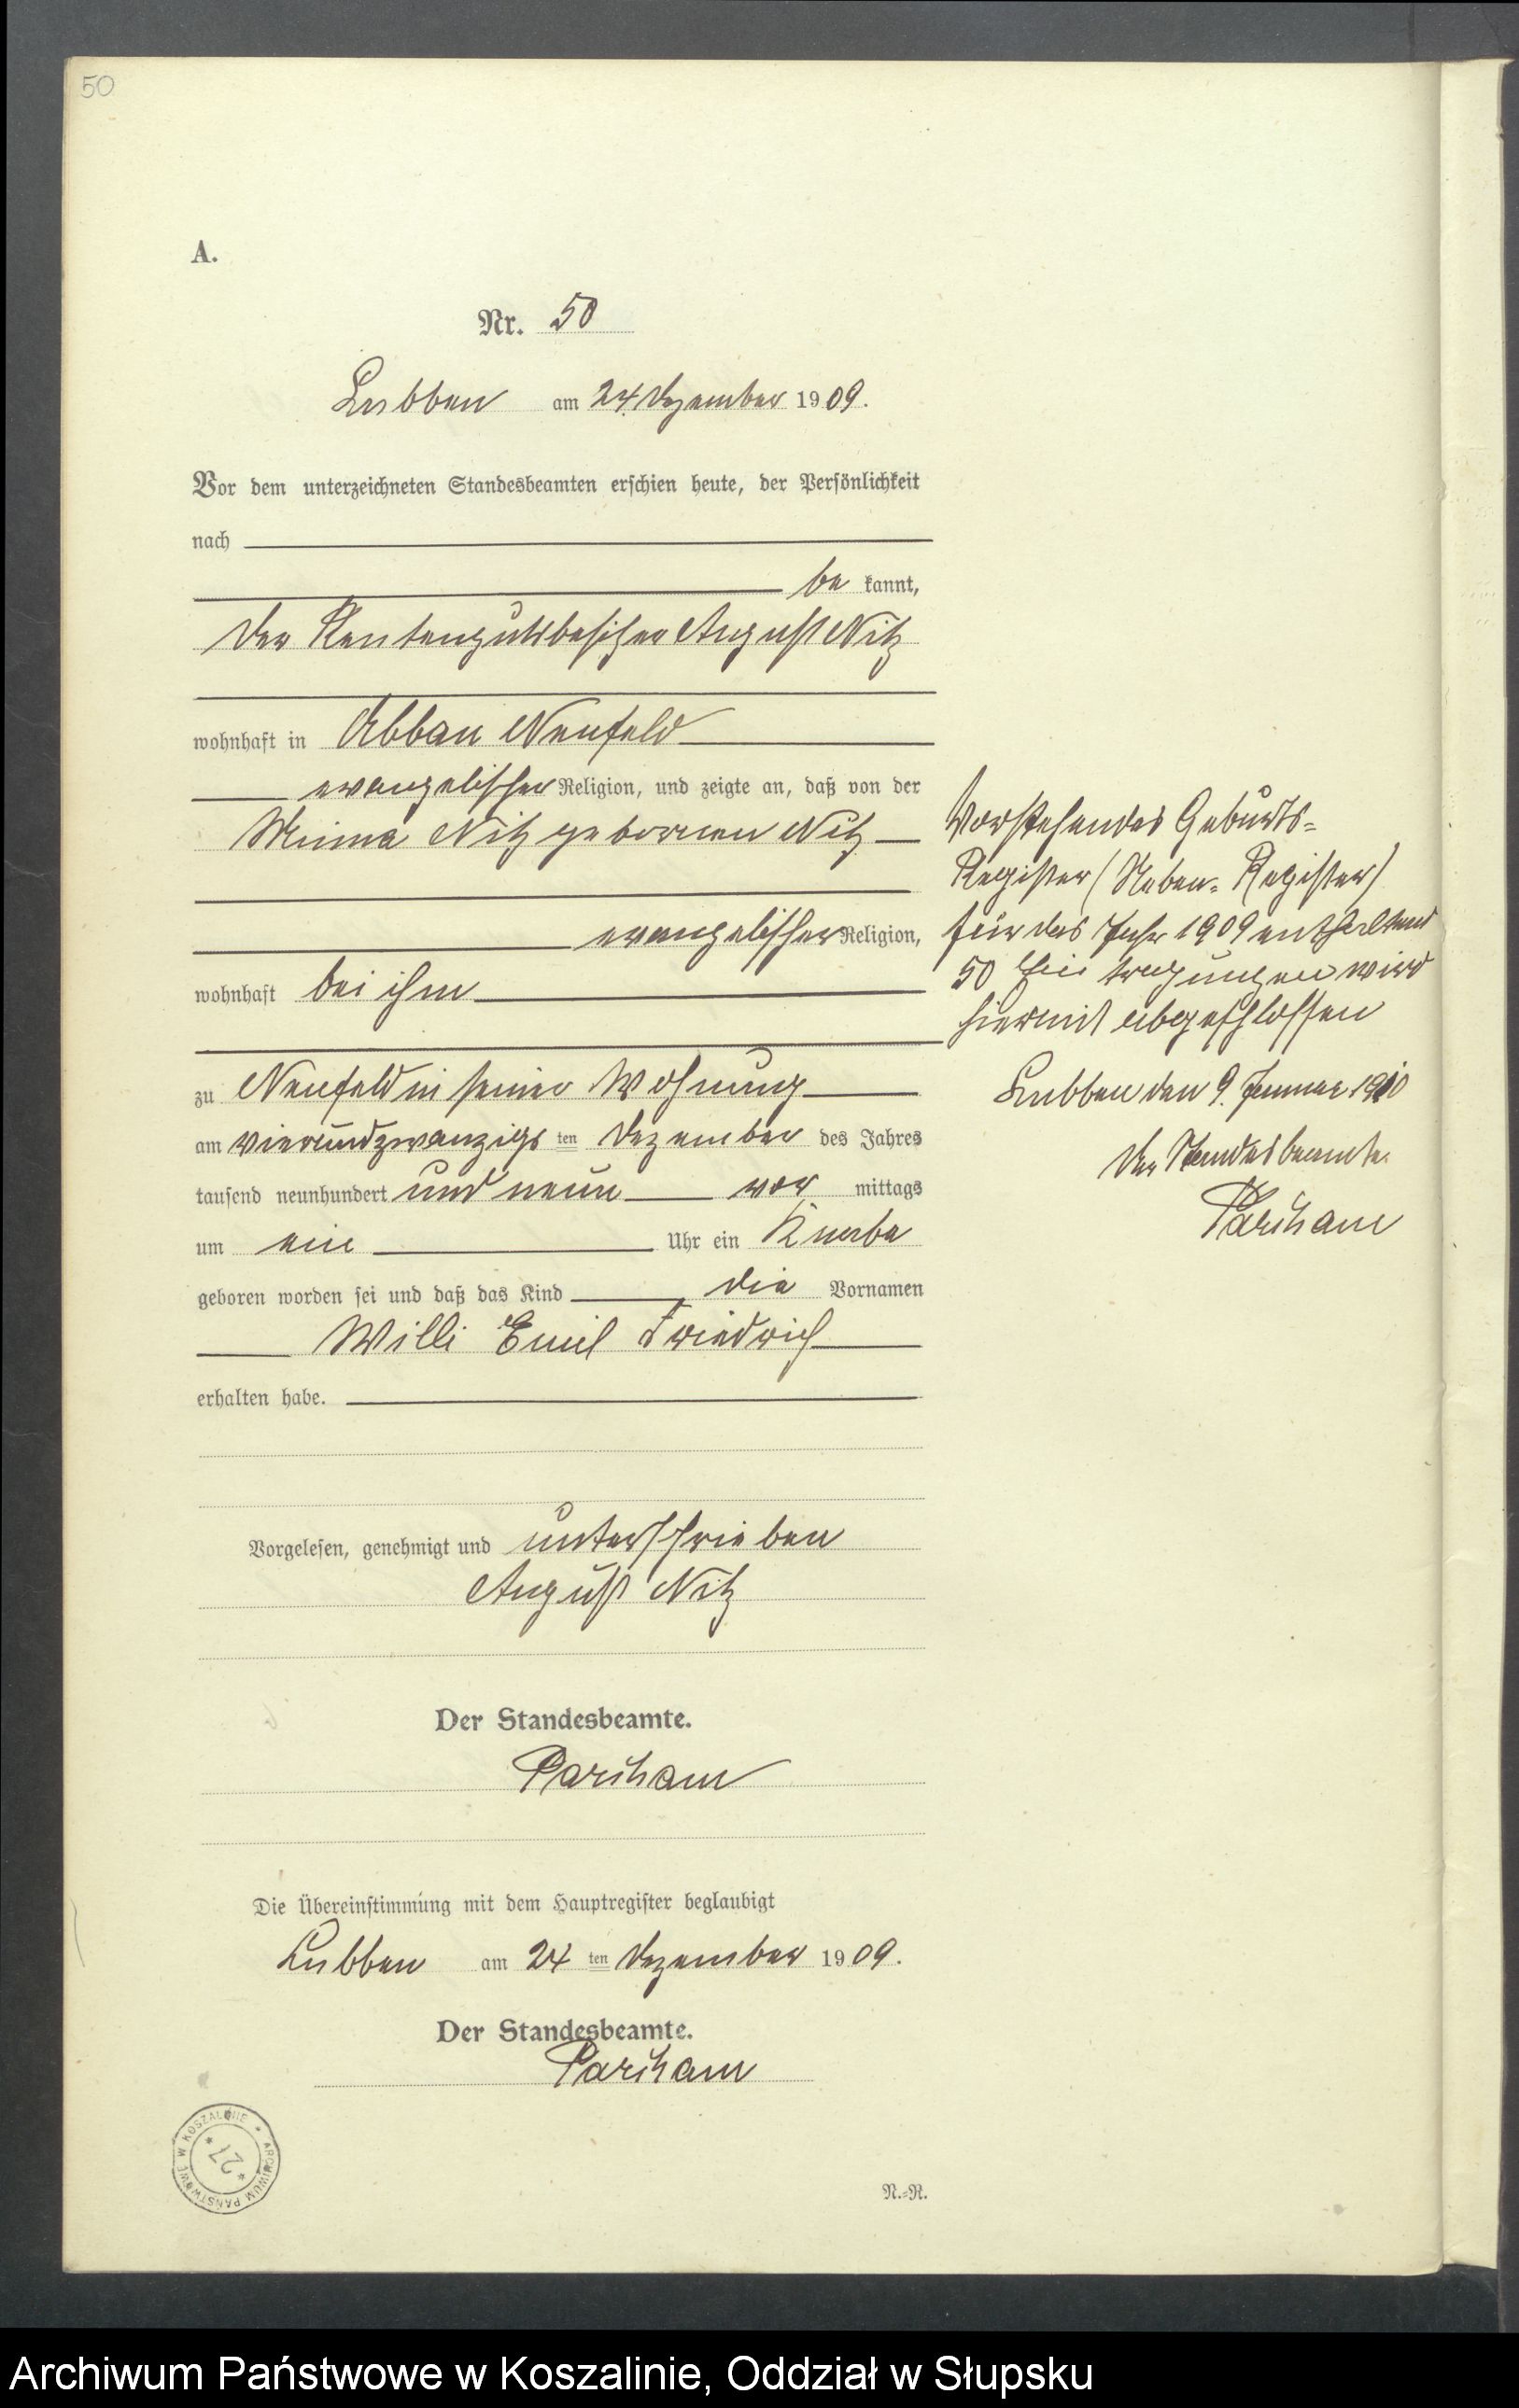 50
A.
Nr. 50
Lubben am 24. Dezember 1909.
Vor dem unterzeichneten Standesbeamten erschien heute, der Persönlichkeit
nach
be kannt,
der Rentengutsbesitzer August Nitz
wohnhaft in Abbau Neufeld
evangelischer Religion, und zeigte an, daß von der
Minna Nitz geborenen Nitz
evangelischer Religion,
wohnhaft bei ihm
zu Neufeld in seiner Wohnung
am vierundzwanzigs ten Dezember des Jahres
tausend neunhundert und neun vor mittags
um ein Uhr ein Knabe
geboren worden sei und daß das Kind die Vornamen
Willi Emil Friedrich
erhalten habe.
Vorgelesen, genehmigt und unterschrieben
August Nitz
Der Standesbeamte.
Die Übereinstimmung mit dem Hauptregister beglaubigt
Lubben am 24 ten Dezember 1909.
Der Standesbeamte.
N.=R.
Vorstehendes Geburts=
Register (Neben=Register)
für das Jahr 1909 enthaltend
50 Eintragungen wird
hiermit abgeschlossen
Lubben den 9. Januar 1910
Der Standesbeamte.
ARCHIWUM PAŃSTWOWE W KOSZALINIE
* 27 *
Archiwum Państwowe w Koszalinie, Oddział w Słupsku